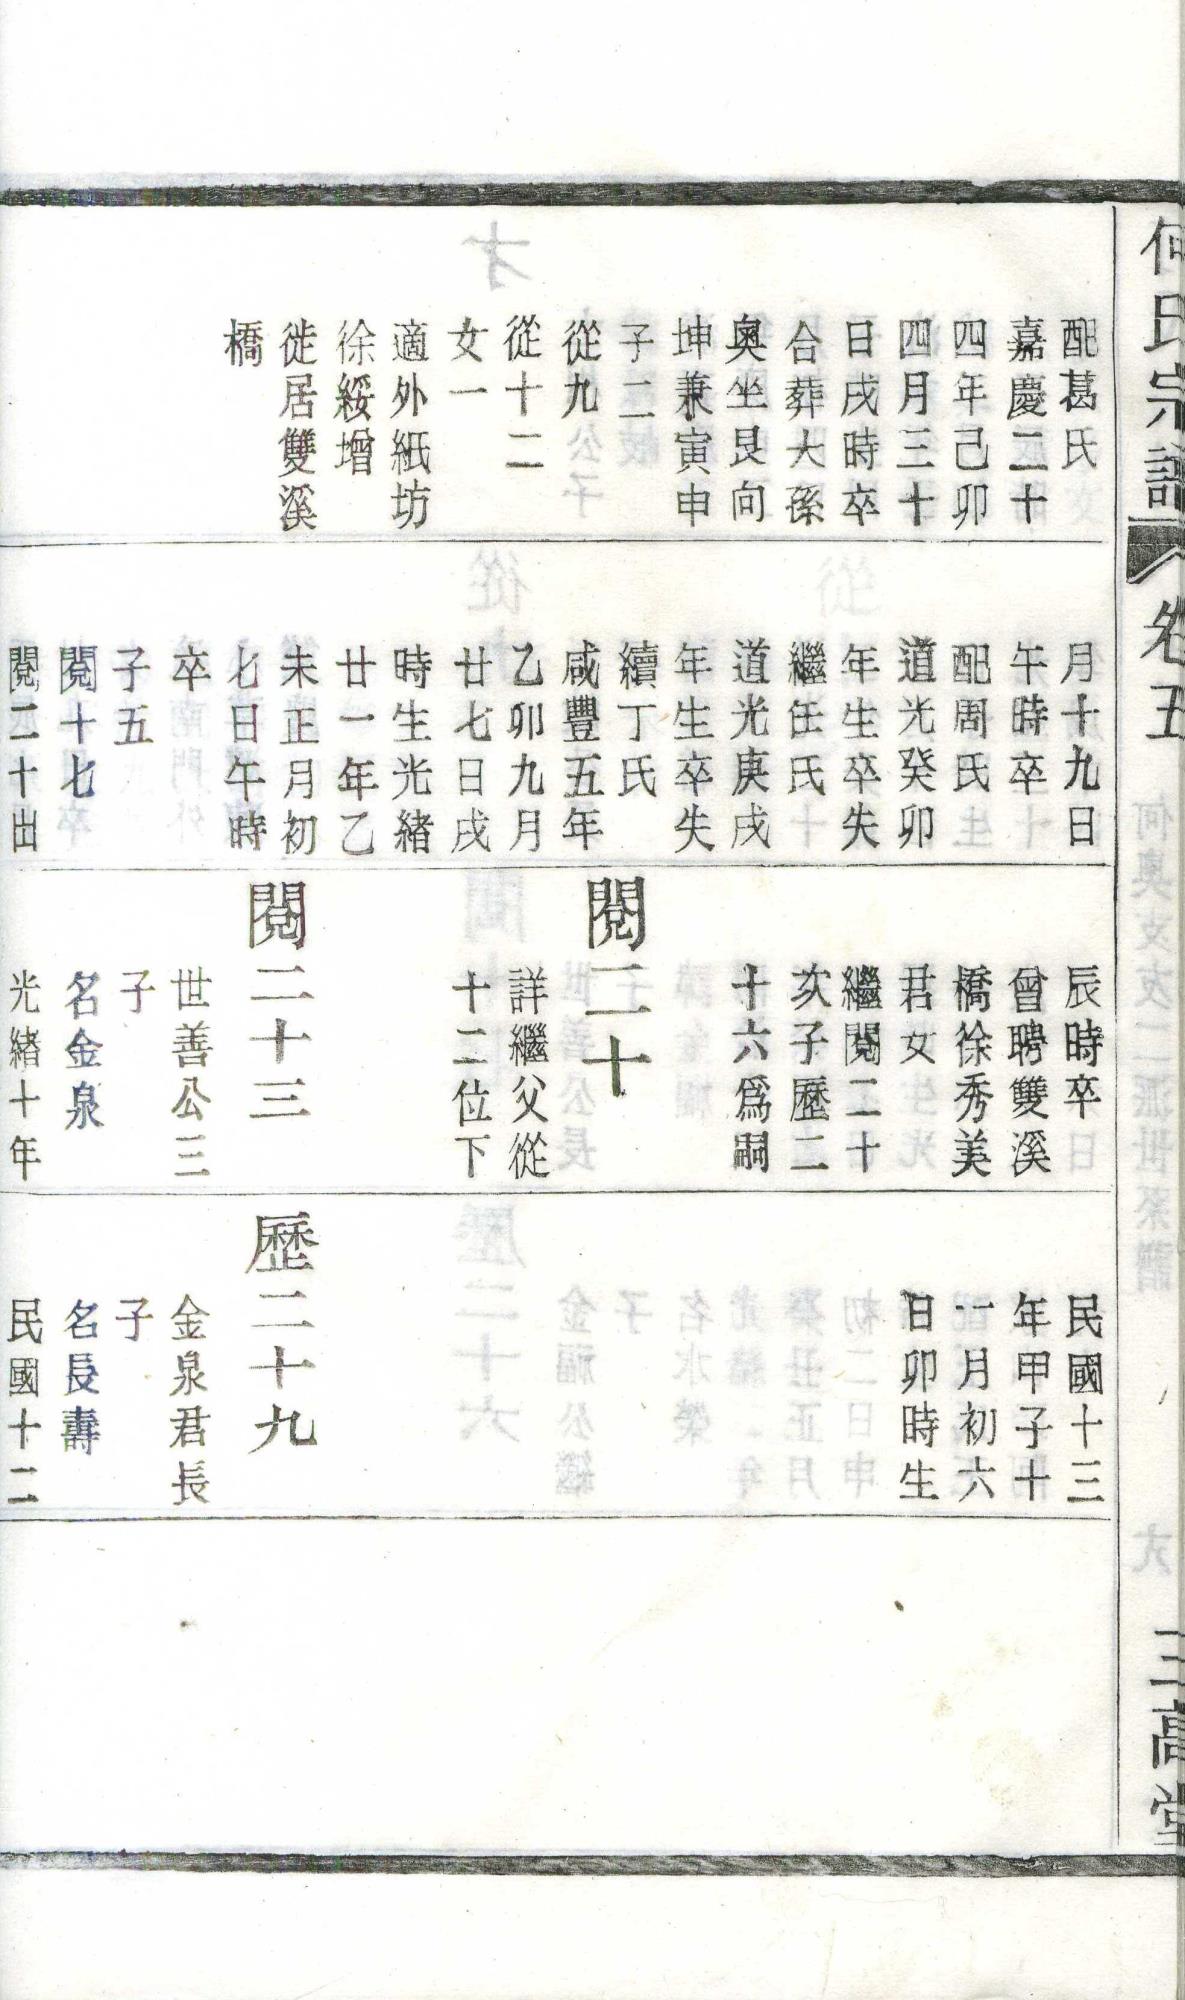 何氏宗譜
卷五
三高堂
配葛氏
嘉慶二十
四年己卯
四月三十
日戌時卒
合葬大孫
奥坐艮向
坤兼寅申
子二
從九
從十二
女一
適外紙坊
徐綏增
徙居雙溪
橋
月十九日
午時卒
配周氏
道光癸卯
年生卒失
繼任氏
道光庚戌
年生卒失
續丁氏
咸豐五年
乙卯九月
廿七日戌
時生光緒
廿一年乙
未正月初
七日午時
卒
子五
閱十七
閱二十出
辰時卒
曾聘雙溪
橋徐秀美
君女
繼閱二十
次子歷二
十六爲嗣
閱二十
詳繼父從
十二位下
閱二十三
世善公三
子
名金泉
光緒十年
民國十三
年甲子十
一月初六
日卯時生
歷二十九
金泉君長
子
名長壽
民國十二